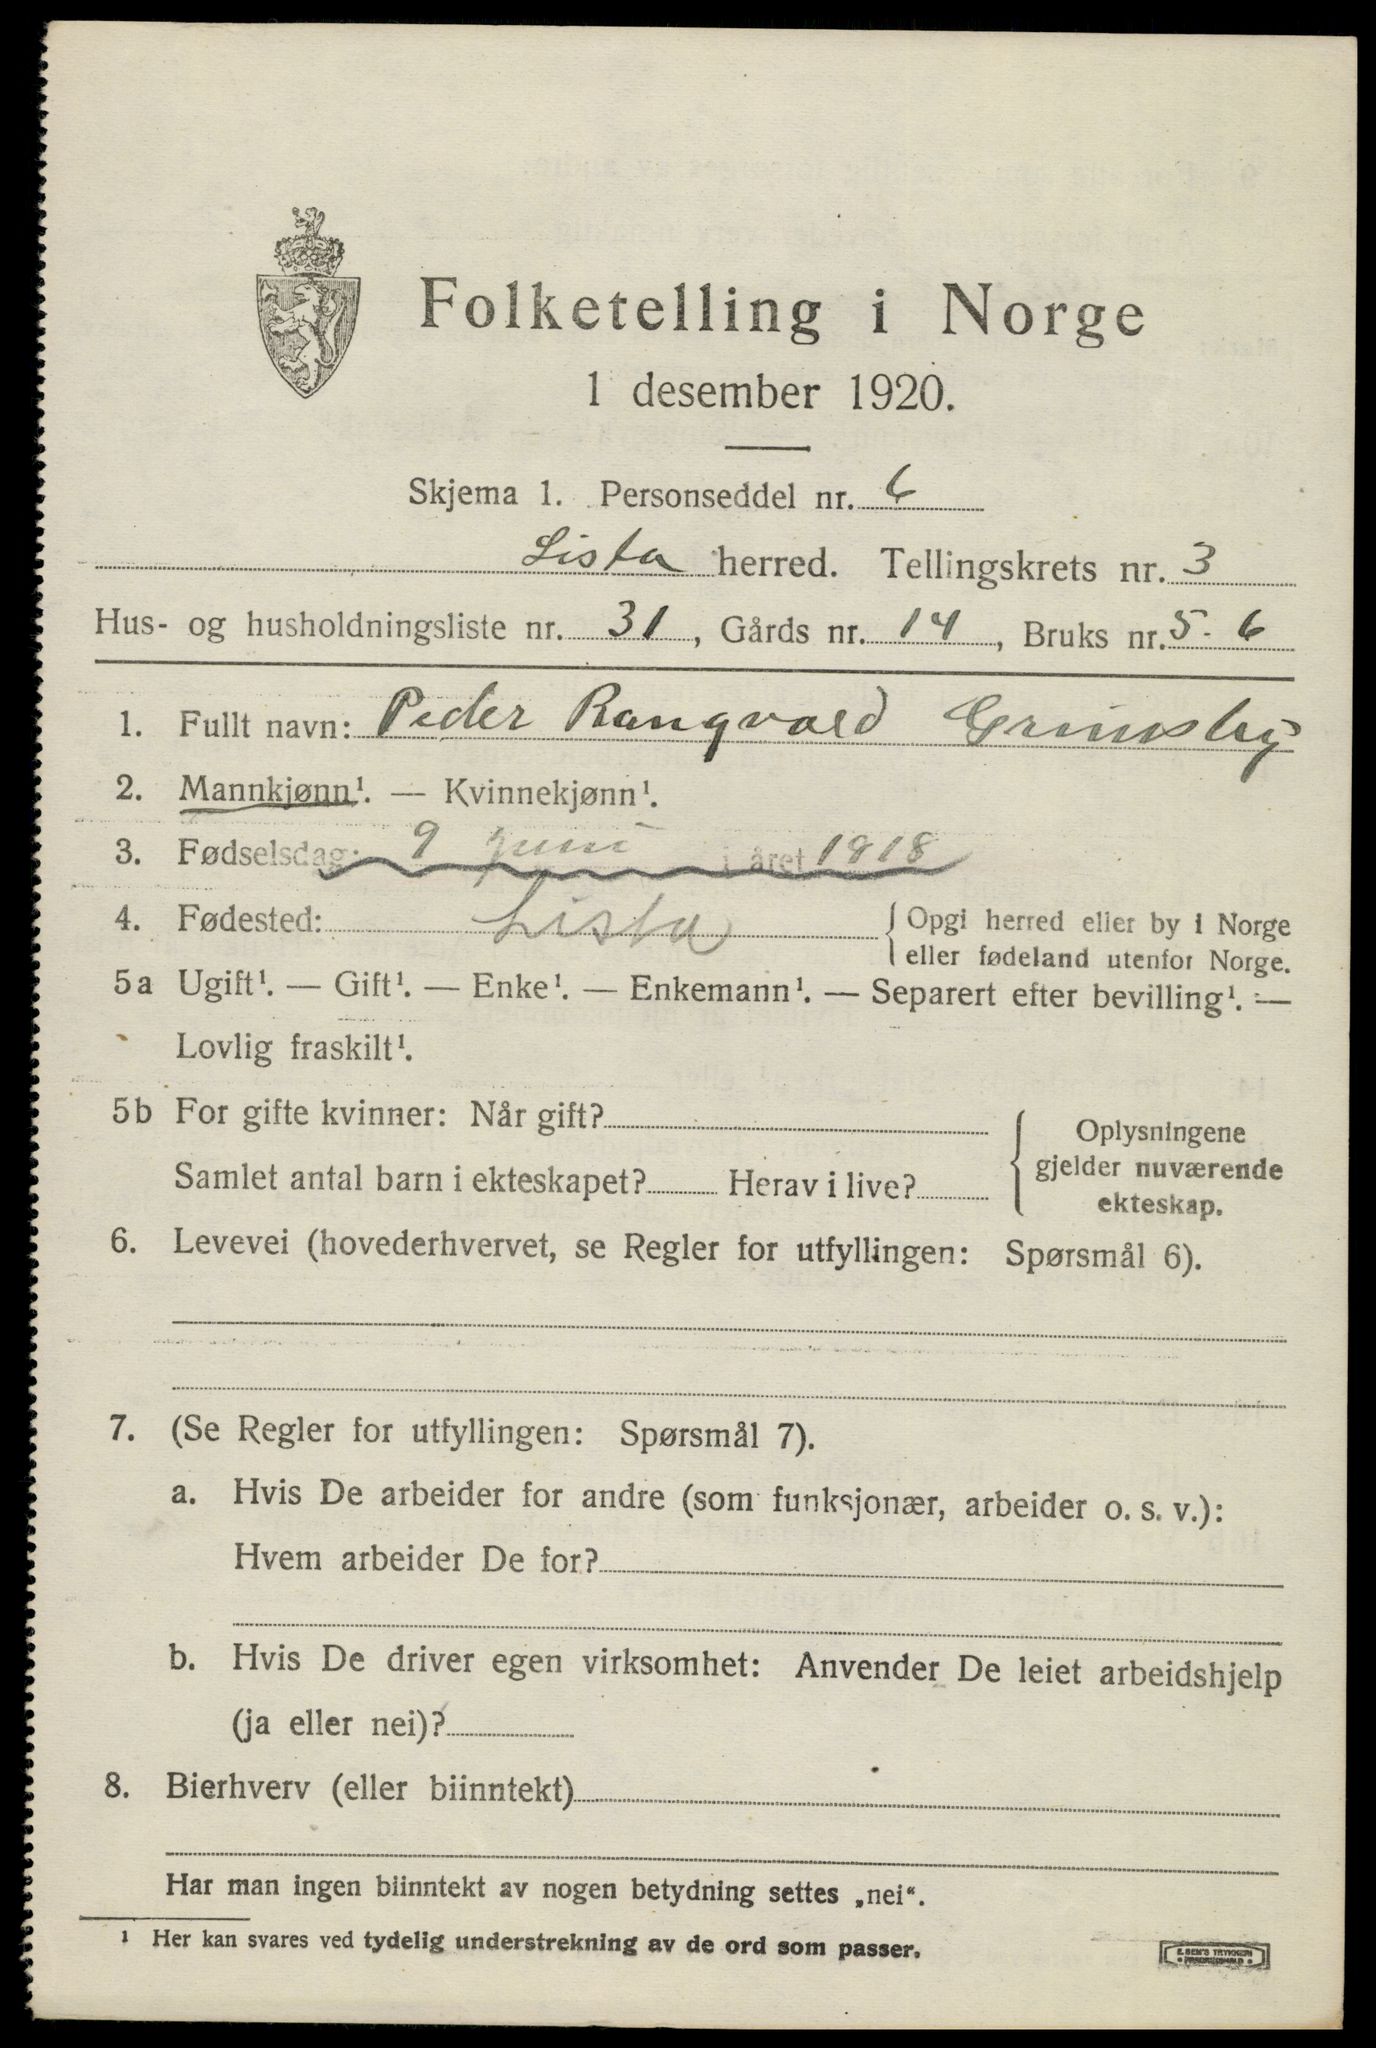 Folketelling i Norge
1 desember 1920.
Skjema 1. Personseddel nr. 6
Lista herred. Tellingskrets nr. 3
Hus- og husholdningsliste nr. 31, Gårds nr. 14, Bruks nr. 5-6
1. Fullt navn: Peder Rangvald Grimsby
2. Mannkjønn¹. — Kvinnekjønn¹.
3. Fødselsdag: 9 juni i året 1918
4. Fødested: Lista { Opgi herred eller by i Norge
eller fødeland utenfor Norge.
5a Ugift¹. — Gift¹. — Enke¹. — Enkemann¹. — Separert efter bevilling¹. —
Lovlig fraskilt¹.
5b For gifte kvinner: Når gift?
Samlet antal barn i ekteskapet? Herav i live?
Oplysningene
gjelder nuværende
ekteskap.
6. Levevei (hovederhvervet, se Regler for utfyllingen: Spørsmål 6).
7. (Se Regler for utfyllingen: Spørsmål 7).
a. Hvis De arbeider for andre (som funksjonær, arbeider o. s. v.):
Hvem arbeider De for?
b. Hvis De driver egen virksomhet: Anvender De leiet arbeidshjelp
(ja eller nei)?
8. Bierhverv (eller biinntekt)
Har man ingen biinntekt av nogen betydning settes „nei“.
¹ Her kan svares ved tydelig understrekning av de ord som passer.
E. SEM'S TRYKKERI
FREDRIKSHALD